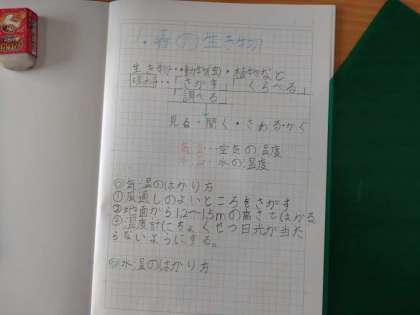 1.春の生き物
生き物・・動物(虫)・植物など
「さがす」「くらべる」
「調べる」
見る・聞く・さわる・かぐ
気温・・空気の温度
水温・・水の温度
◎気温のはかり方
①風通しのよいところをさがす
②地面から1.2〜1.5mの高さではかる
③温度計にちょくせつ日光が当た
らないようにする。
◎水温のはかり方